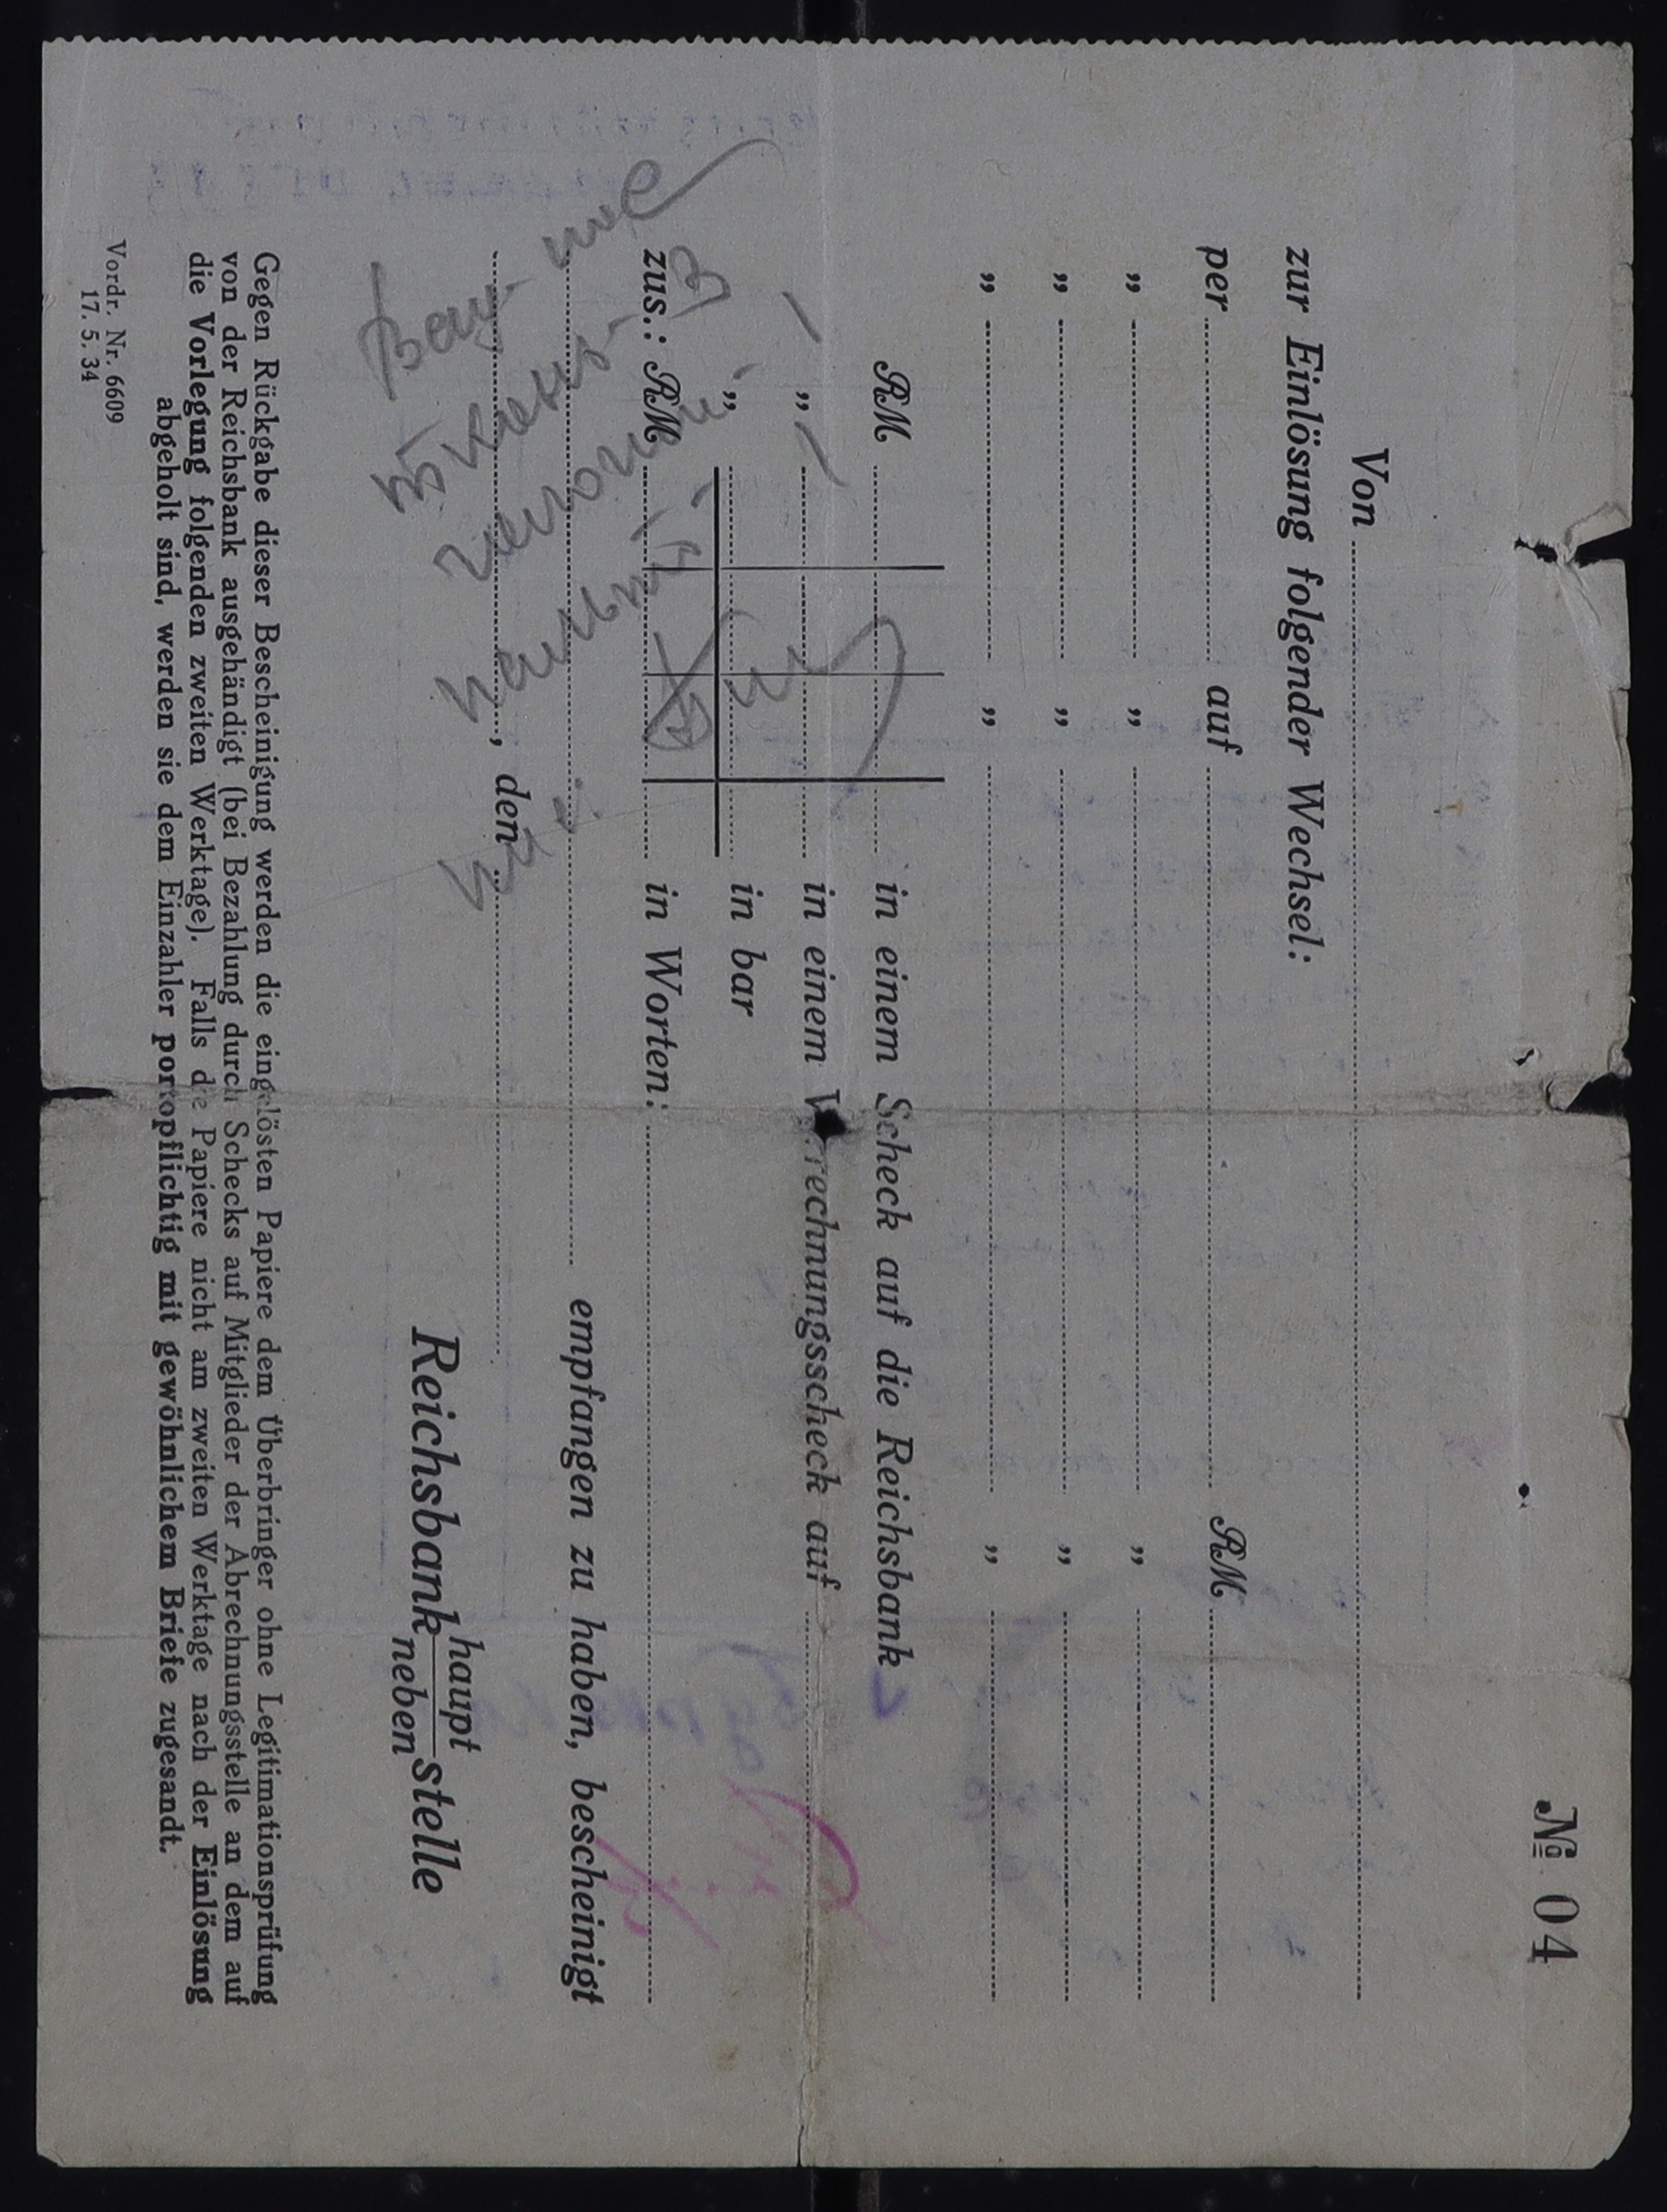 № 04
Von
zur Einlösung folgender Wechsel:
per auf RM
„ „ „
„ „ „
„ „ „
RM in einem Scheck auf die Reichsbank
„ in einem Verrechnungsscheck auf
„ in bar
zus.: RM in Worten:
empfangen zu haben, bescheinigt
, den
Reichsbank haupt stelle
neben
Gegen Rückgabe dieser Bescheinigung werden die eingelösten Papiere dem Überbringer ohne Legitimationsprüfung
von der Reichsbank ausgehändigt (bei Bezahlung durch Schecks auf Mitglieder der Abrechnungsstelle an dem auf
die Vorlegung folgenden zweiten Werktage). Falls die Papiere nicht am zweiten Werktage nach der Einlösung
abgeholt sind, werden sie dem Einzahler portopflichtig mit gewöhnlichem Briefe zugesandt.
Vordr. Nr. 6609
17. 5. 34